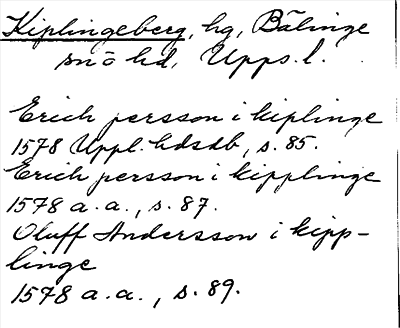 Kiplingeberg, hg, Bälinge
sn o hd, Upps. l.
Erich persson i kiplinge
1578 Uppl. hdsdb, s. 85.
Erich persson i kipplinge
1578 a. a., s. 87.
Oluff Andersson i kipp-
linge
1578 a. a., s. 89.